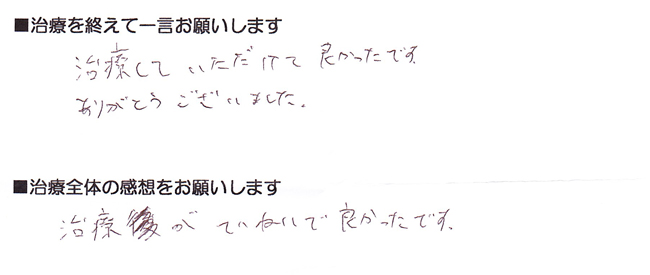 ■治療を終えて一言お願いします
治療していただけて良かったです。
ありがとうございました。
■治療全体の感想をお願いします
治療がていねいで良かったです。